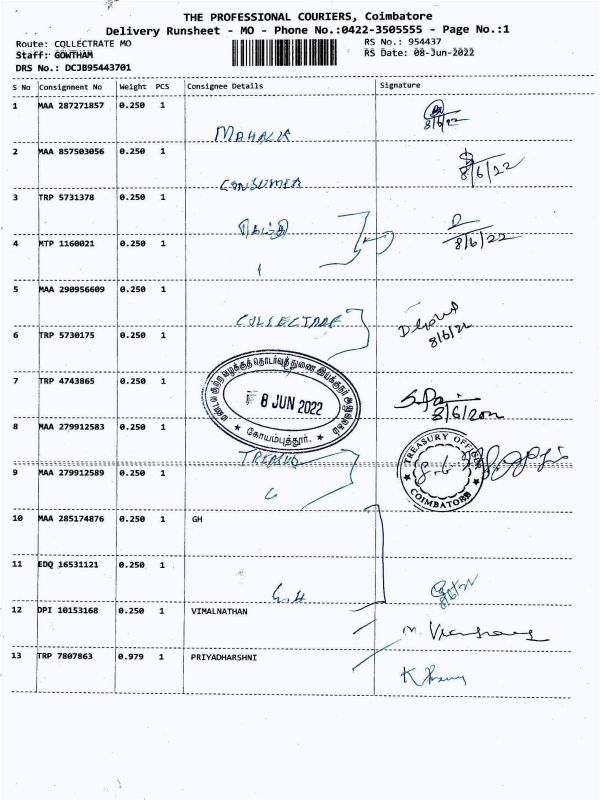 THE PROFESSIONAL COURIERS, Coimbatore
Delivery Runsheet - MO - Phone No.:0422-3505555 - Page No.:1
Route: COLLECTRATE MO
RS No.: 954437
Staff: GOWTHAM
RS Date: 08-Jun-2022
DRS No.: DCJB95443701
S No Consignment No Weight PCS Consignee Details Signature
1 MAA 287271857 0.250 1
8/6/22
2 MAA 857503056 0.250 1
8/6/22
CONSUMER
3 TRP 5731378 0.250 1
8/6/22
4 MTP 1160021 0.250 1
5 MAA 290956609 0.250 1
COLLECTRATE
8/6/22
6 TRP 5730175 0.250 1
7 TRP 4743865 0.250 1
8 JUN 2022
கோயம்புத்தூர்.
8/6/2022
8 MAA 279912583 0.250 1
TREASURY OFFICER
COIMBATORE
9 MAA 279912589 0.250 1
10 MAA 285174876 0.250 1 GH
11 EDQ 16531121 0.250 1
G.H
8/6/22
12 DPI 10153168 0.250 1 VIMALNATHAN
13 TRP 7807863 0.979 1 PRIYADHARSHNI